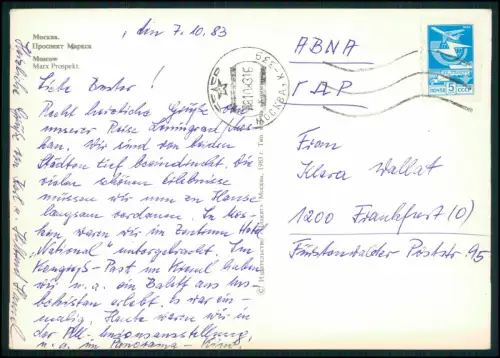 Москва.
Проспект Маркса
Moscow
Marx Prospekt.
, den 7.10.83
Liebe Buster!
Recht herzliche Grüße von
unserer Reise Leningrad/Mos-
kau. Wir sind von beiden
Städten tief beeindruckt. Die
vielen schönen Erlebnisse
müssen wir nun zu Hause
langsam verdauen. In Mos-
kau waren wir im Zentrum Hotel
„National" untergebracht. Im
Kongreß-Palast im Kreml haben
wir u.a. ein Ballett aus Us-
bekistan erlebt. Es war ein-
malig. Heute waren wir in
der Allunionsausstellung,
u.a. im Panorama-Kino.
Herzliche Grüße von
© Издательство „Планета" Москва, 1983 г.
МОСКВА
К-336
ПОЧТА СССР
5
АВИА
ГДР
Frau
Klara Wallat
1200 Frankfurt (O)
Fürstenwalder Poststr. 95